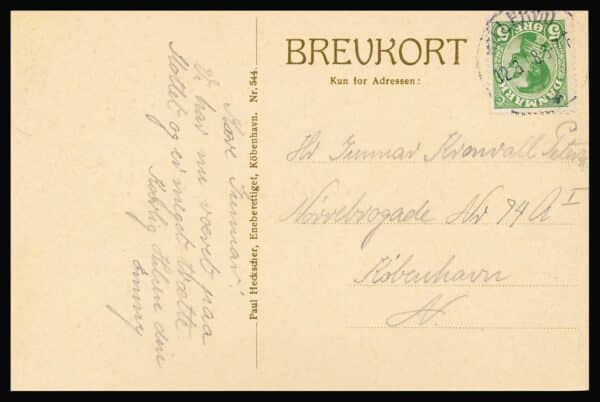 BREVKORT
Kun for Adressen:
5 ØRE 5
DANMARK
Hr Gunnar Kronvall
Nørrebrogade Nr 94 A I
København
N.
Paul Heckscher, Eneberettiget, København. Nr. 544.
Kære Gunnar!
Vi har nu været paa
Slottet og er meget trætte
Kærlig Hilsen din
Emmy